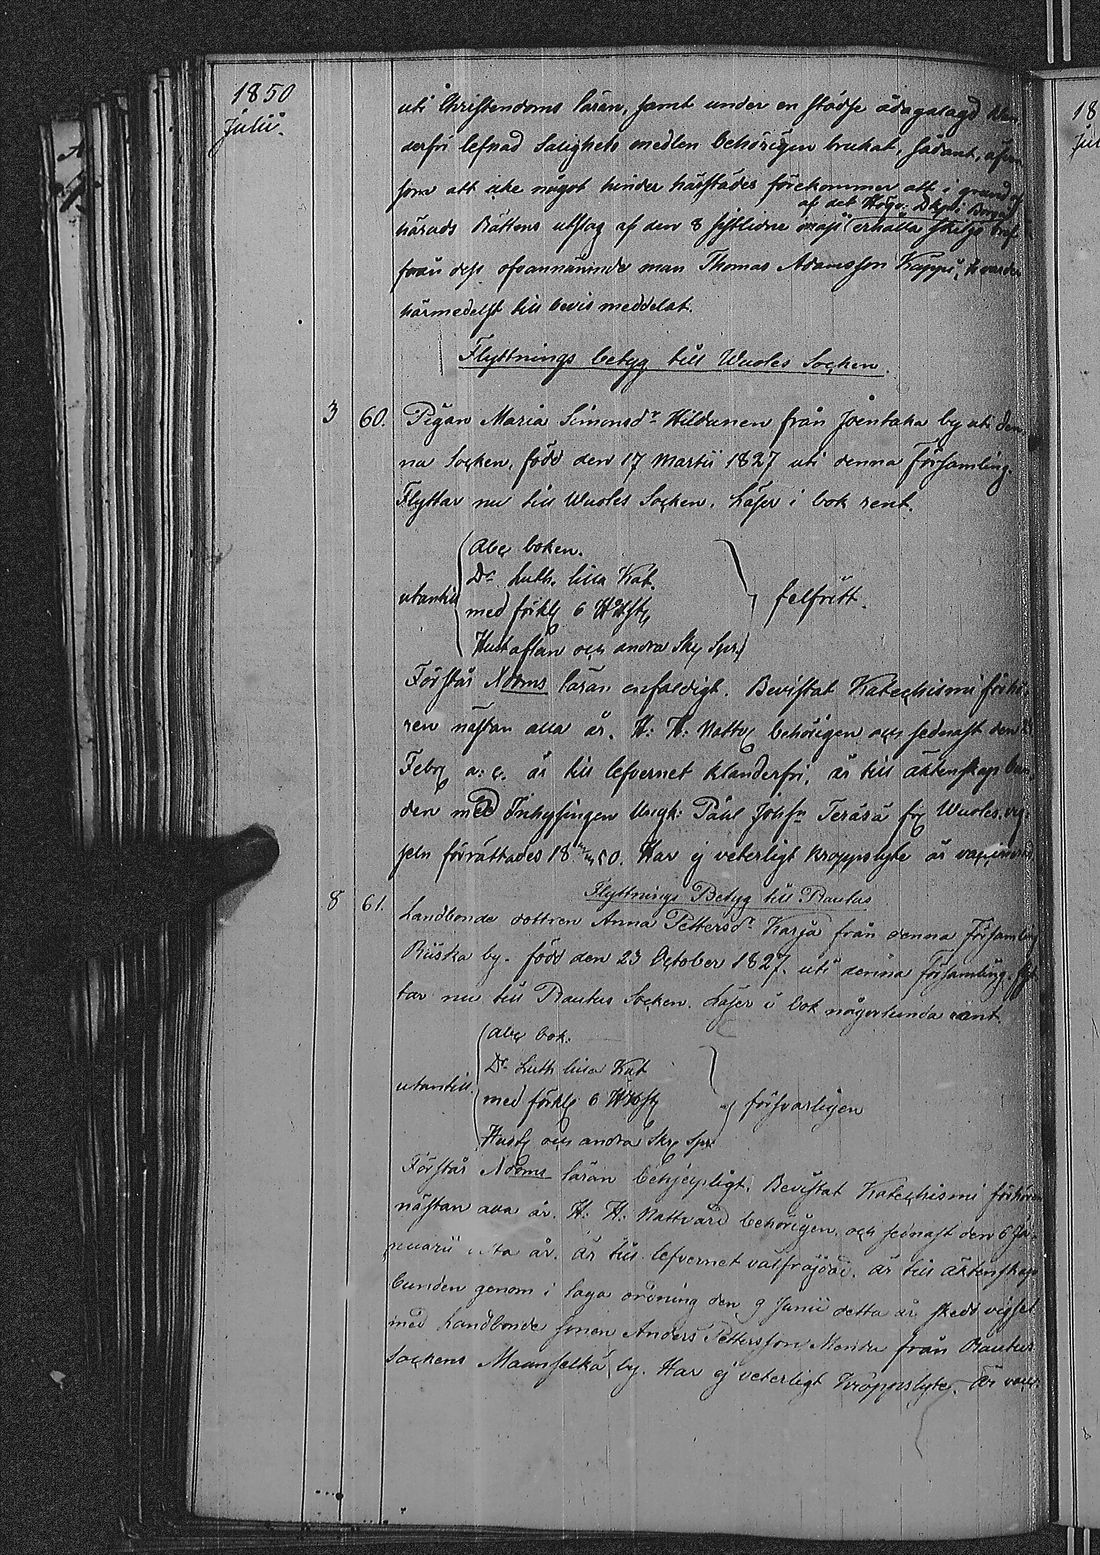 1850
Julii.
uti Christendoms läran, samt under en städse ådagalagd klan
derfri lefnad Salighets medlen behörigen brukat, sådant, äfven
som att icke något hinder härstädes förekommer att i grund af
af det Högv. Dkpli Borgå
härads Rättens utslag af den 8 sistlidne maji erhålla skiljo bref
från dess ofvannämnde man Thomas Adamsson Kappi, varder
härmedelst till bevis meddelat.
Flyttnings betyg till Wuoles Socken.
3 60. Pigan Maria Simonsdr Hildunen från Joentaka by uti den
na Socken, född den 17 Martii 1827 uti denna Församling.
Flyttar nu till Wuoles Socken. Läser i bok rent.
Abc boken.
Dr Luth. lilla Kat.
utantill med förkl 6 HHst felfritt.
Hustaflan och andra Skr Spr
Förstår Ndoms läran enfaldigt. Bevistat Katechismi förhö-
ren nästan alla år. H: H: Nattv behörigen och sednast den
Febr a: c. är till lefvernet klanderfri, är till äktenskap bun
den med Inhysingen Ungk: Påul Johsn Teräsä från Wuoles, vig
seln förrättades 18 50. Har ej veterligt kroppslyte är vaccinerad
Flyttnings Betyg till Rautus
8 61. Landbonde dottren Anna Pettersdr Karja från denna Församling
Riiska by. född den 23 October 1827. uti denna Församling. flyt
tar nu till Rautus Socken. Läser i bok någorlunda rent.
Abc bok.
Dr Luth lilla Kat
utantill. med förkl 6 HHst försvarligen
Hust och andra Skr Spr
Förstår Ndoms läran behjelpligt. Bevistat Katechismi förhören
nästan alla år. H: H: Nattvard behörigen och sednast den 6 Ja-
nuarii detta år. är till lefvernet välfräjdad. är till äktenskap
bunden genom i laga ordning den 9 Junii detta år skedd vigsel
med Landbonde sonen Anders Pettersson Mendu från Rautus
Sockens Maanselkä by. Har ej veterligt kroppslyte. Är vacc.
18
Jul